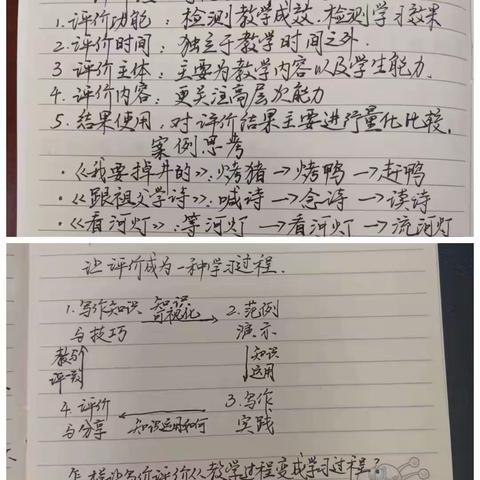 1.评价功能：检测教学成效.检测学习效果
2.评价时间：独立于教学时间之外.
3 评价主体：主要为教学内容以及学生能力.
4. 评价内容：更关注高层次能力
5. 结果使用，对评价结果主要进行量化比较.
案例思考
·《我要掉井的》：烤猪→烤鸭→赶鸭
·《跟祖父学诗》：喊诗→念诗→读诗
·《看河灯》：等河灯→看河灯→流河灯
让评价成为一种学习过程.
1.写作知识与技巧
知识可视化
2.范例演示
教与评一致
知识运用
4.评价与分享
知识运用如何
3.写作实践
怎样让写作评价从教学过程变成学习过程？